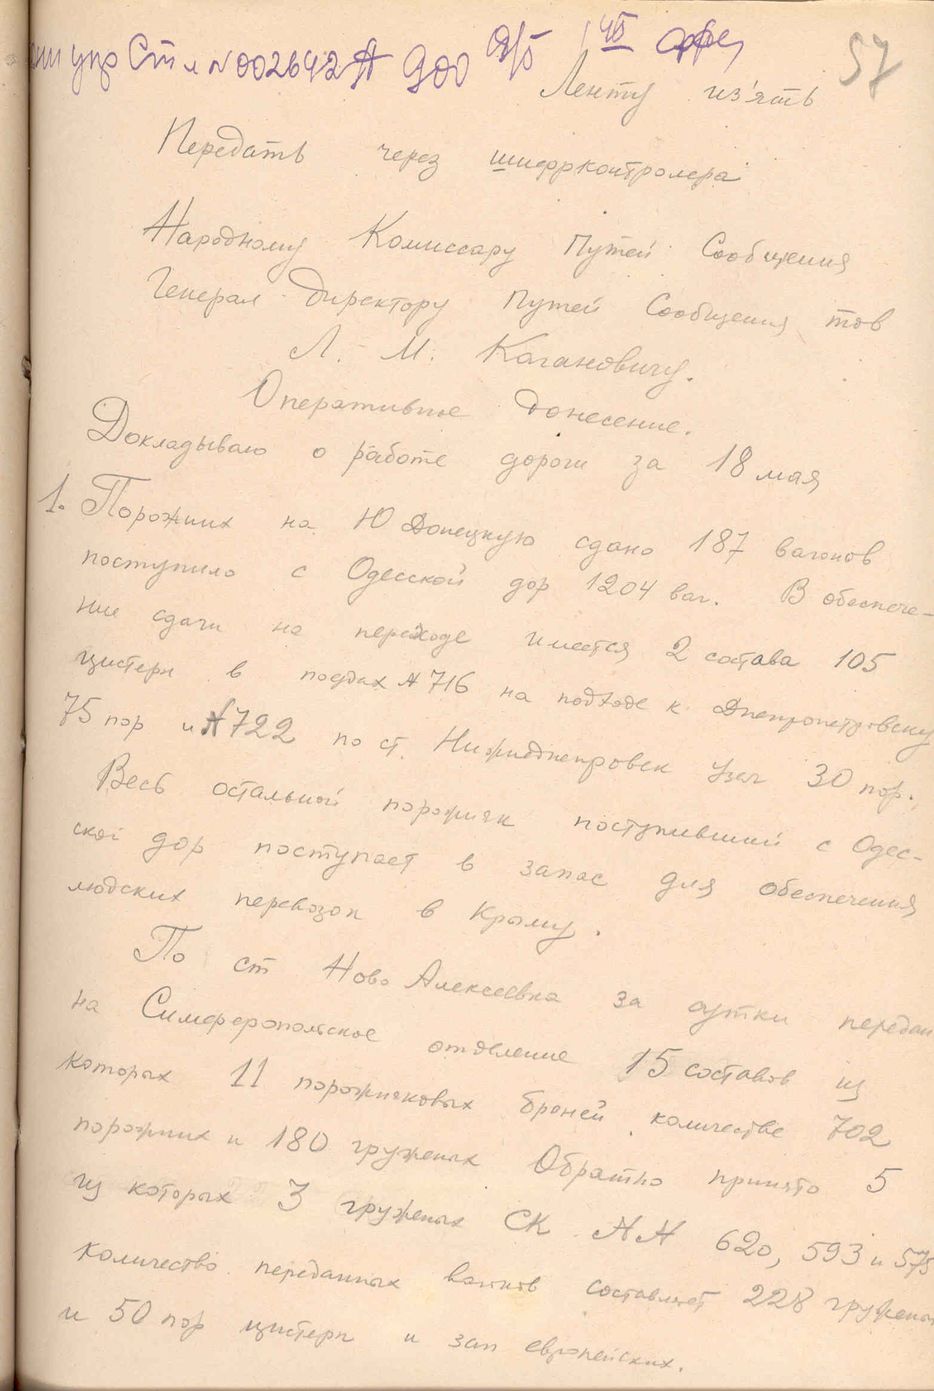 упр Ст л N002642А 900 1 45
57
Ленту из'ять
Передать через шифрконтролера
Народному Комиссару Путей Сообщения
Генерал Директору Путей Сообщения тов
Л. М. Кагановичу.
Оперативное донесение.
Докладываю о работе дороги за 18 мая
1. Порожних на Ю Донецкую сдано 187 вагонов
поступило с Одесской дор 1204 ваг. В обеспече-
ние сдачи на переходе имеется 2 состава 105
цистерн в поездах N 716 на подходе к Днепропетровску
75 пор и N 722 по ст. Нижнеднепровск Узел 30 пор.,
Весь остальной порожняк поступивший с Одес-
ской дор поступает в запас для обеспечения
людских перевозок в Крыму.
По ст Ново Алексеевка за сутки передан
на Симферопольское отделение 15 составов из
которых 11 порожняковых броней количестве 702
порожних и 180 груженых Обратно принято 5
из которых 3 груженых СК NN 620, 593 и 575
Количество переданных вагонов составляет 228 груженых
и 50 пор цистерн и зап европейских.